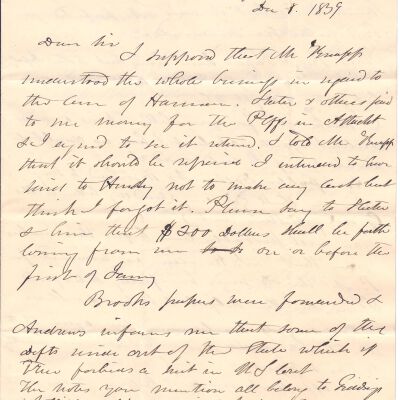 Dec 8. 1839
Dear Sir
I supposed that Mr Knapp
understood the whole business in regard to
the case of Harman. Slater & others paid
to me money for the Plffs in Attacht
& I agreed to see it returned. I told Mr Knapp
that it should be repaid & I intended to have
said to Hensly not to make any cost but
think I forgot it. Please say to Slater
& him that $200 Dollars shall be forth
coming from me on or before the
first of Jany
Brooks papers were forwarded &
Andrews informs me that some of the
defts reside out of the State which if
true forbids a suit in U S Court
The notes you mention all belong to Giddings